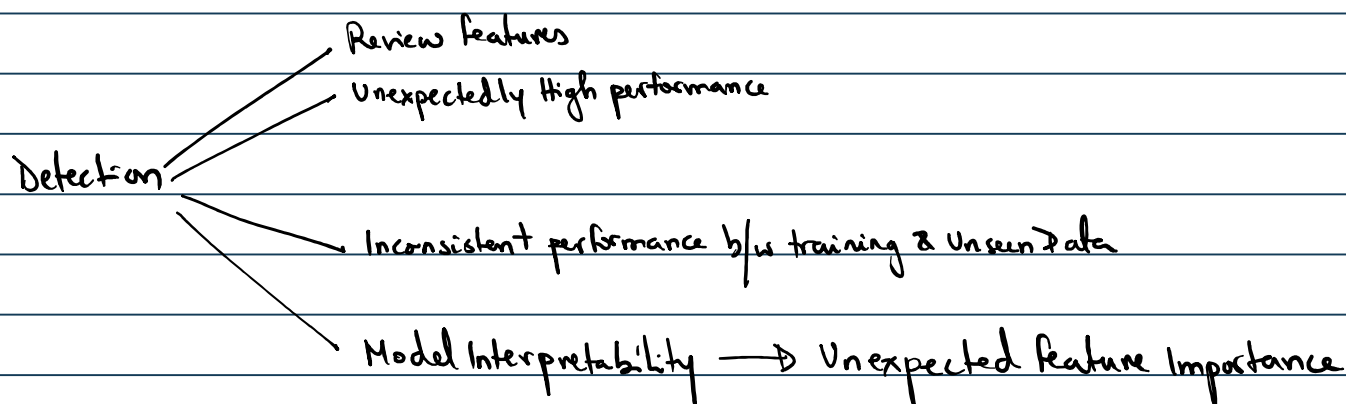 Review features
Unexpectedly High performance
Detection
Inconsistent performance b/w training & Unseen Data
Model Interpretability → Unexpected feature Importance